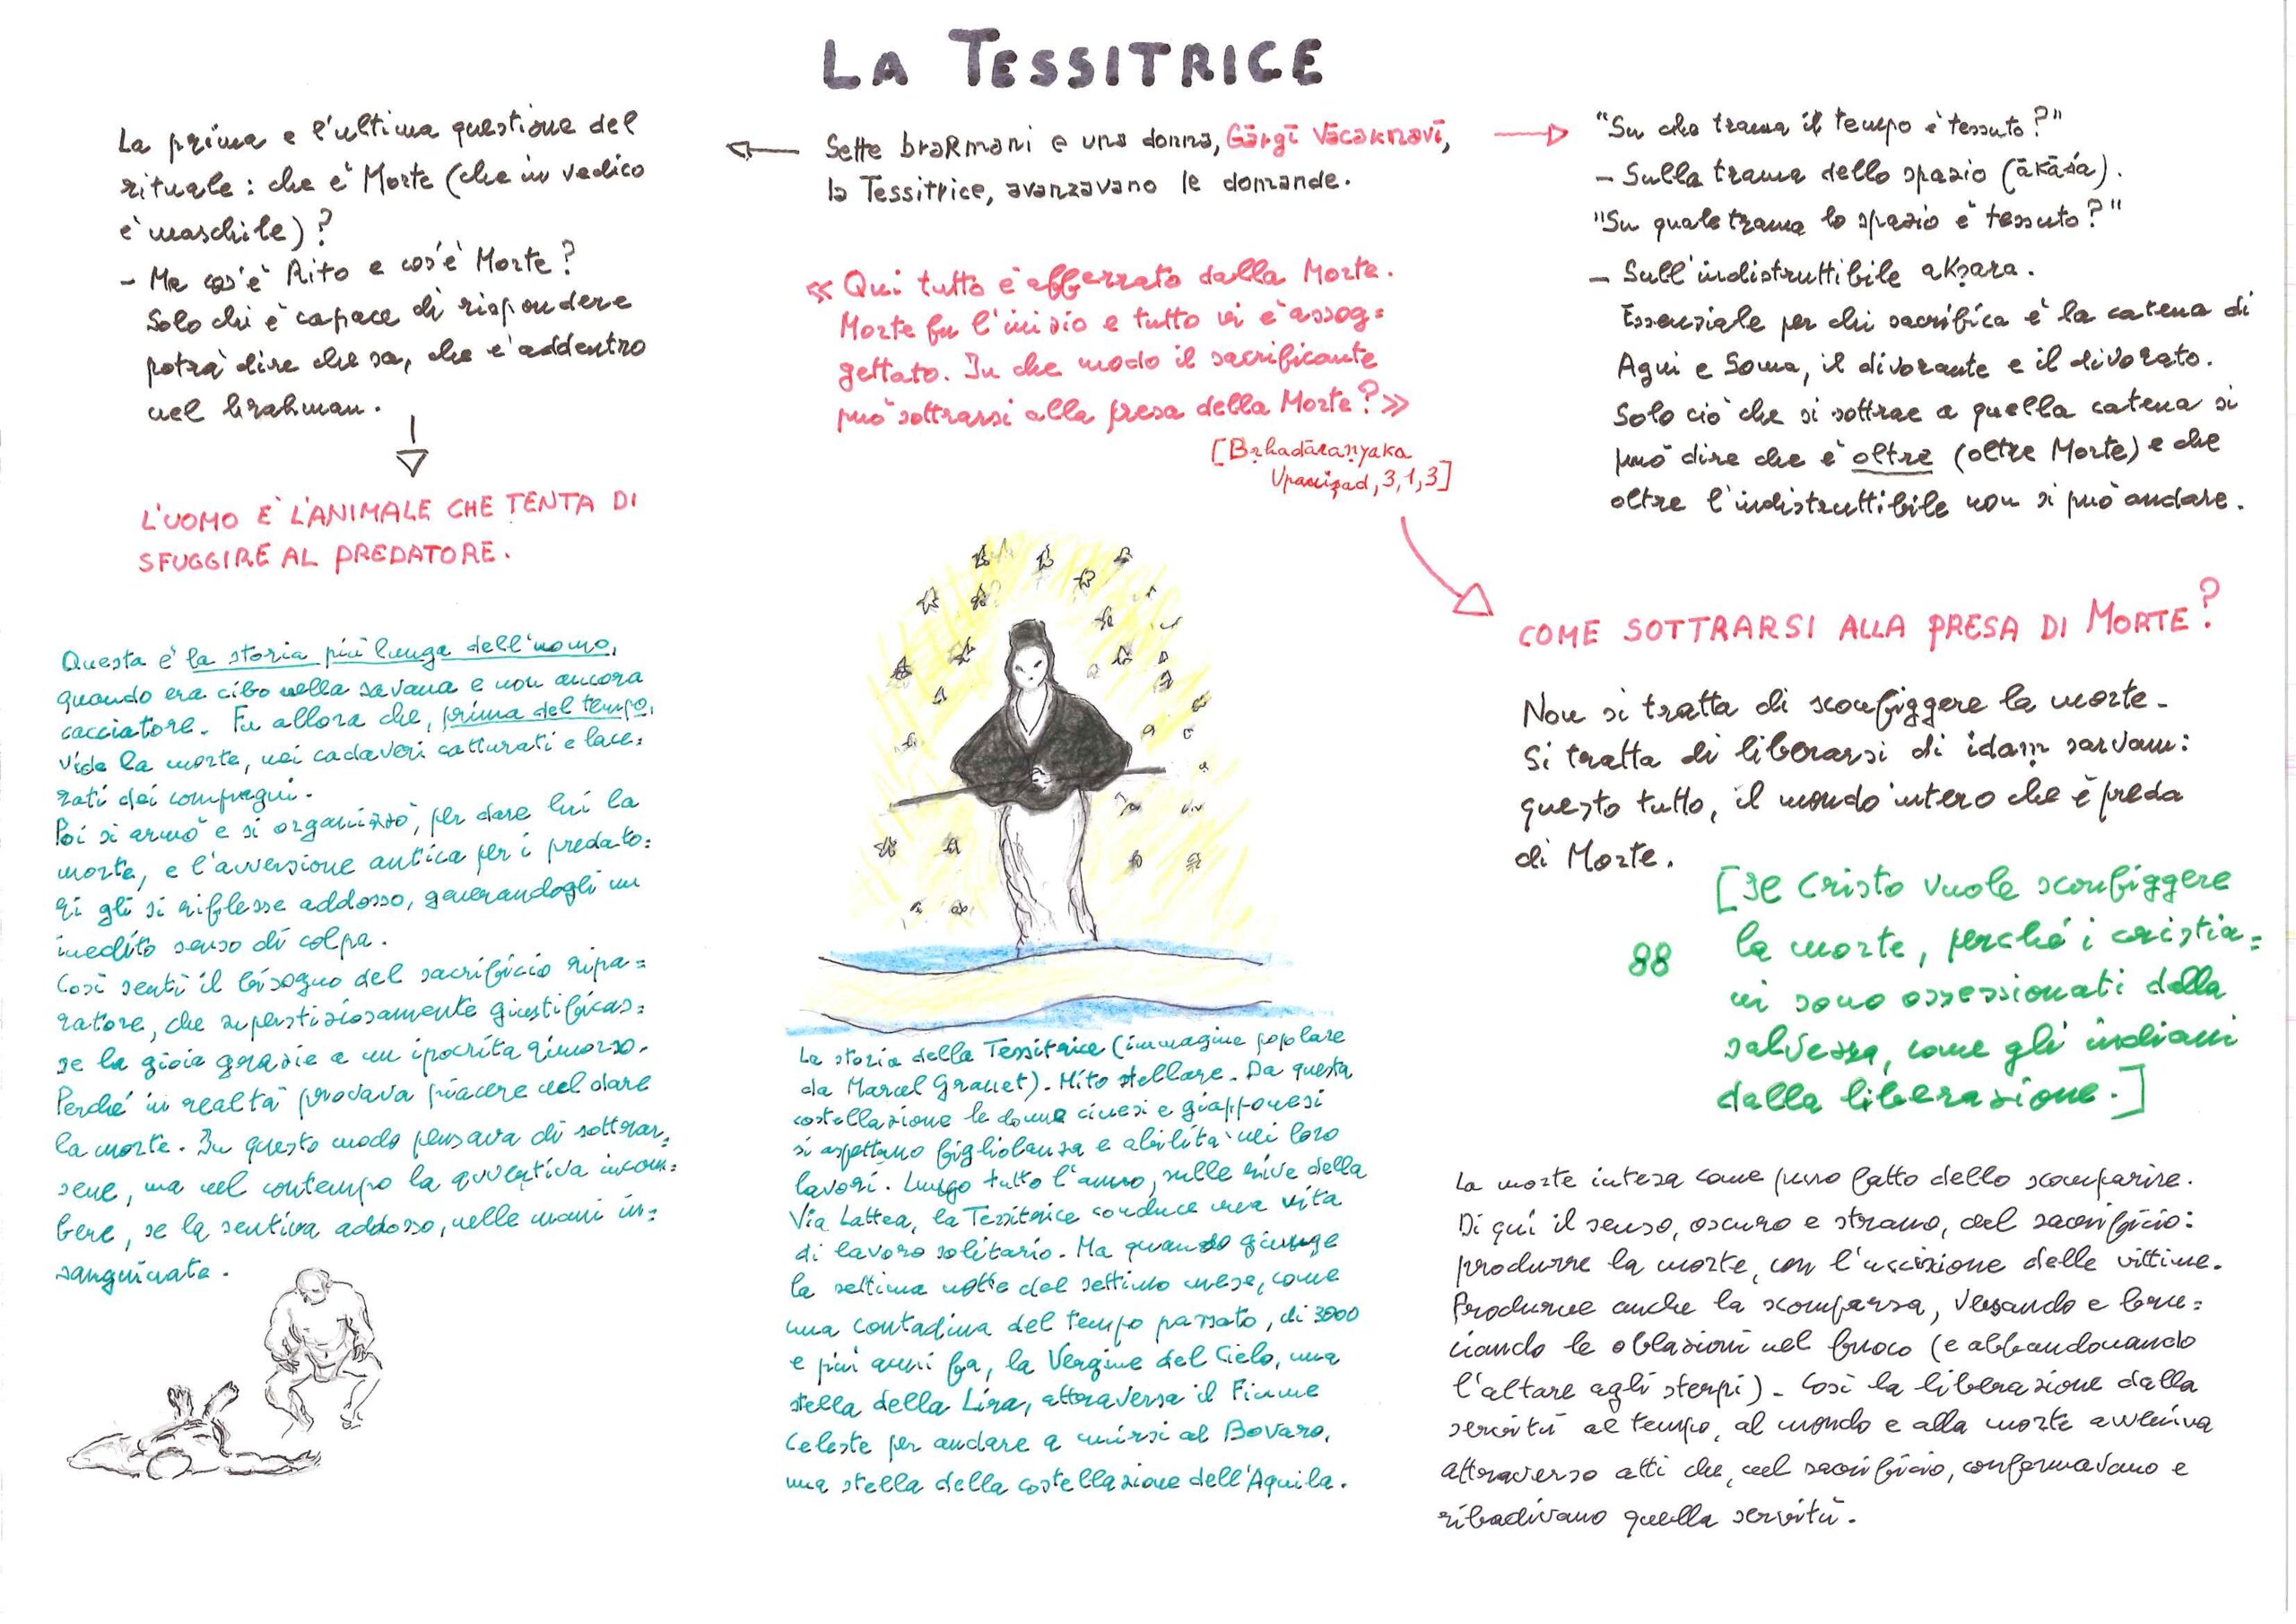 LA TESSITRICE
La prima e l'ultima questione del
rituale: che è Morte (che in vedico
è maschile)?
- Ma cos'è Rito e cos'è Morte?
Solo chi è capace di rispondere
potrà dire che sa, che è addentro
nel brahman.
L'UOMO È L'ANIMALE CHE TENTA DI
SFUGGIRE AL PREDATORE.
Questa è la storia più lunga dell'uomo,
quando era cibo nella savana e non ancora
cacciatore. Fu allora che, prima del tempo,
vide la morte, nei cadaveri catturati e lace=
rati dei compagni.
Poi si armò e si organizzò, per dare lui la
morte, e l'avversione antica per i predato=
ri gli si riflesse addosso, generandogli un
inedito senso di colpa.
Così sentì il bisogno del sacrificio ripa=
ratore, che superstiziosamente giustificas=
se la gioia grazie a un ipocrita rimorso.
Perché in realtà provava piacere nel dare
la morte. In questo modo pensava di sottrar=
sene, ma nel contempo la avvertiva incom=
bere, se la sentiva addosso, nelle mani in=
sanguinate.
Sette braRmani e una donna, Gārgī Vācaknavī,
la Tessitrice, avanzavano le domande.
« Qui tutto è afferrato dalla Morte.
Morte fu l'inizio e tutto vi è assog=
gettato. In che modo il sacrificante
può sottrarsi alla presa della Morte? »
[Bṛhadāraṇyaka
Upaniṣad, 3,1,3]
La storia della Tessitrice (immagine popolare
da Marcel Granet). Mito stellare. Da questa
costellazione le donne cinesi e giapponesi
si aspettano figliolanza e abilità nei loro
lavori. Lungo tutto l'anno, sulle rive della
Via Lattea, la Tessitrice conduce una vita
di lavoro solitario. Ma quando giunge
la settima notte del settimo mese, come
una contadina del tempo passato, di 3000
e più anni fa, la Vergine del Cielo, una
stella della Lira, attraversa il Fiume
Celeste per andare a unirsi al Bovaro,
una stella della costellazione dell'Aquila.
"Su che trama il tempo è tessuto?"
- Sulla trama dello spazio (ākāśa).
"Su quale trama lo spazio è tessuto?"
- Sull'indistruttibile akṣara.
Essenziale per chi sacrifica è la catena di
Agni e Soma, il divorante e il divorato.
Solo ciò che si sottrae a quella catena si
può dire che è oltre (oltre Morte) e che
oltre l'indistruttibile non si può andare.
COME SOTTRARSI ALLA PRESA DI MORTE?
Non si tratta di sconfiggere la morte.
Si tratta di liberarsi di idaṃ sarvam:
questo tutto, il mondo intero che è preda
di Morte.
[Il Cristo vuole sconfiggere
la morte, perché i cristia=
ni sono ossessionati dalla
salvezza, come gli indiani
dalla liberazione.]
88
La morte intesa come puro fatto dello scomparire.
Di qui il senso, oscuro e strano, del sacrificio:
produrre la morte, con l'uccisione delle vittime.
Produrne anche la scomparsa, versando e bru=
ciando le oblazioni nel fuoco (e abbandonando
l'altare agli sterpi). Così la liberazione dalla
servitù al tempo, al mondo e alla morte avveniva
attraverso atti che, nel sacrificio, confermavano e
ribadivano quella servitù.